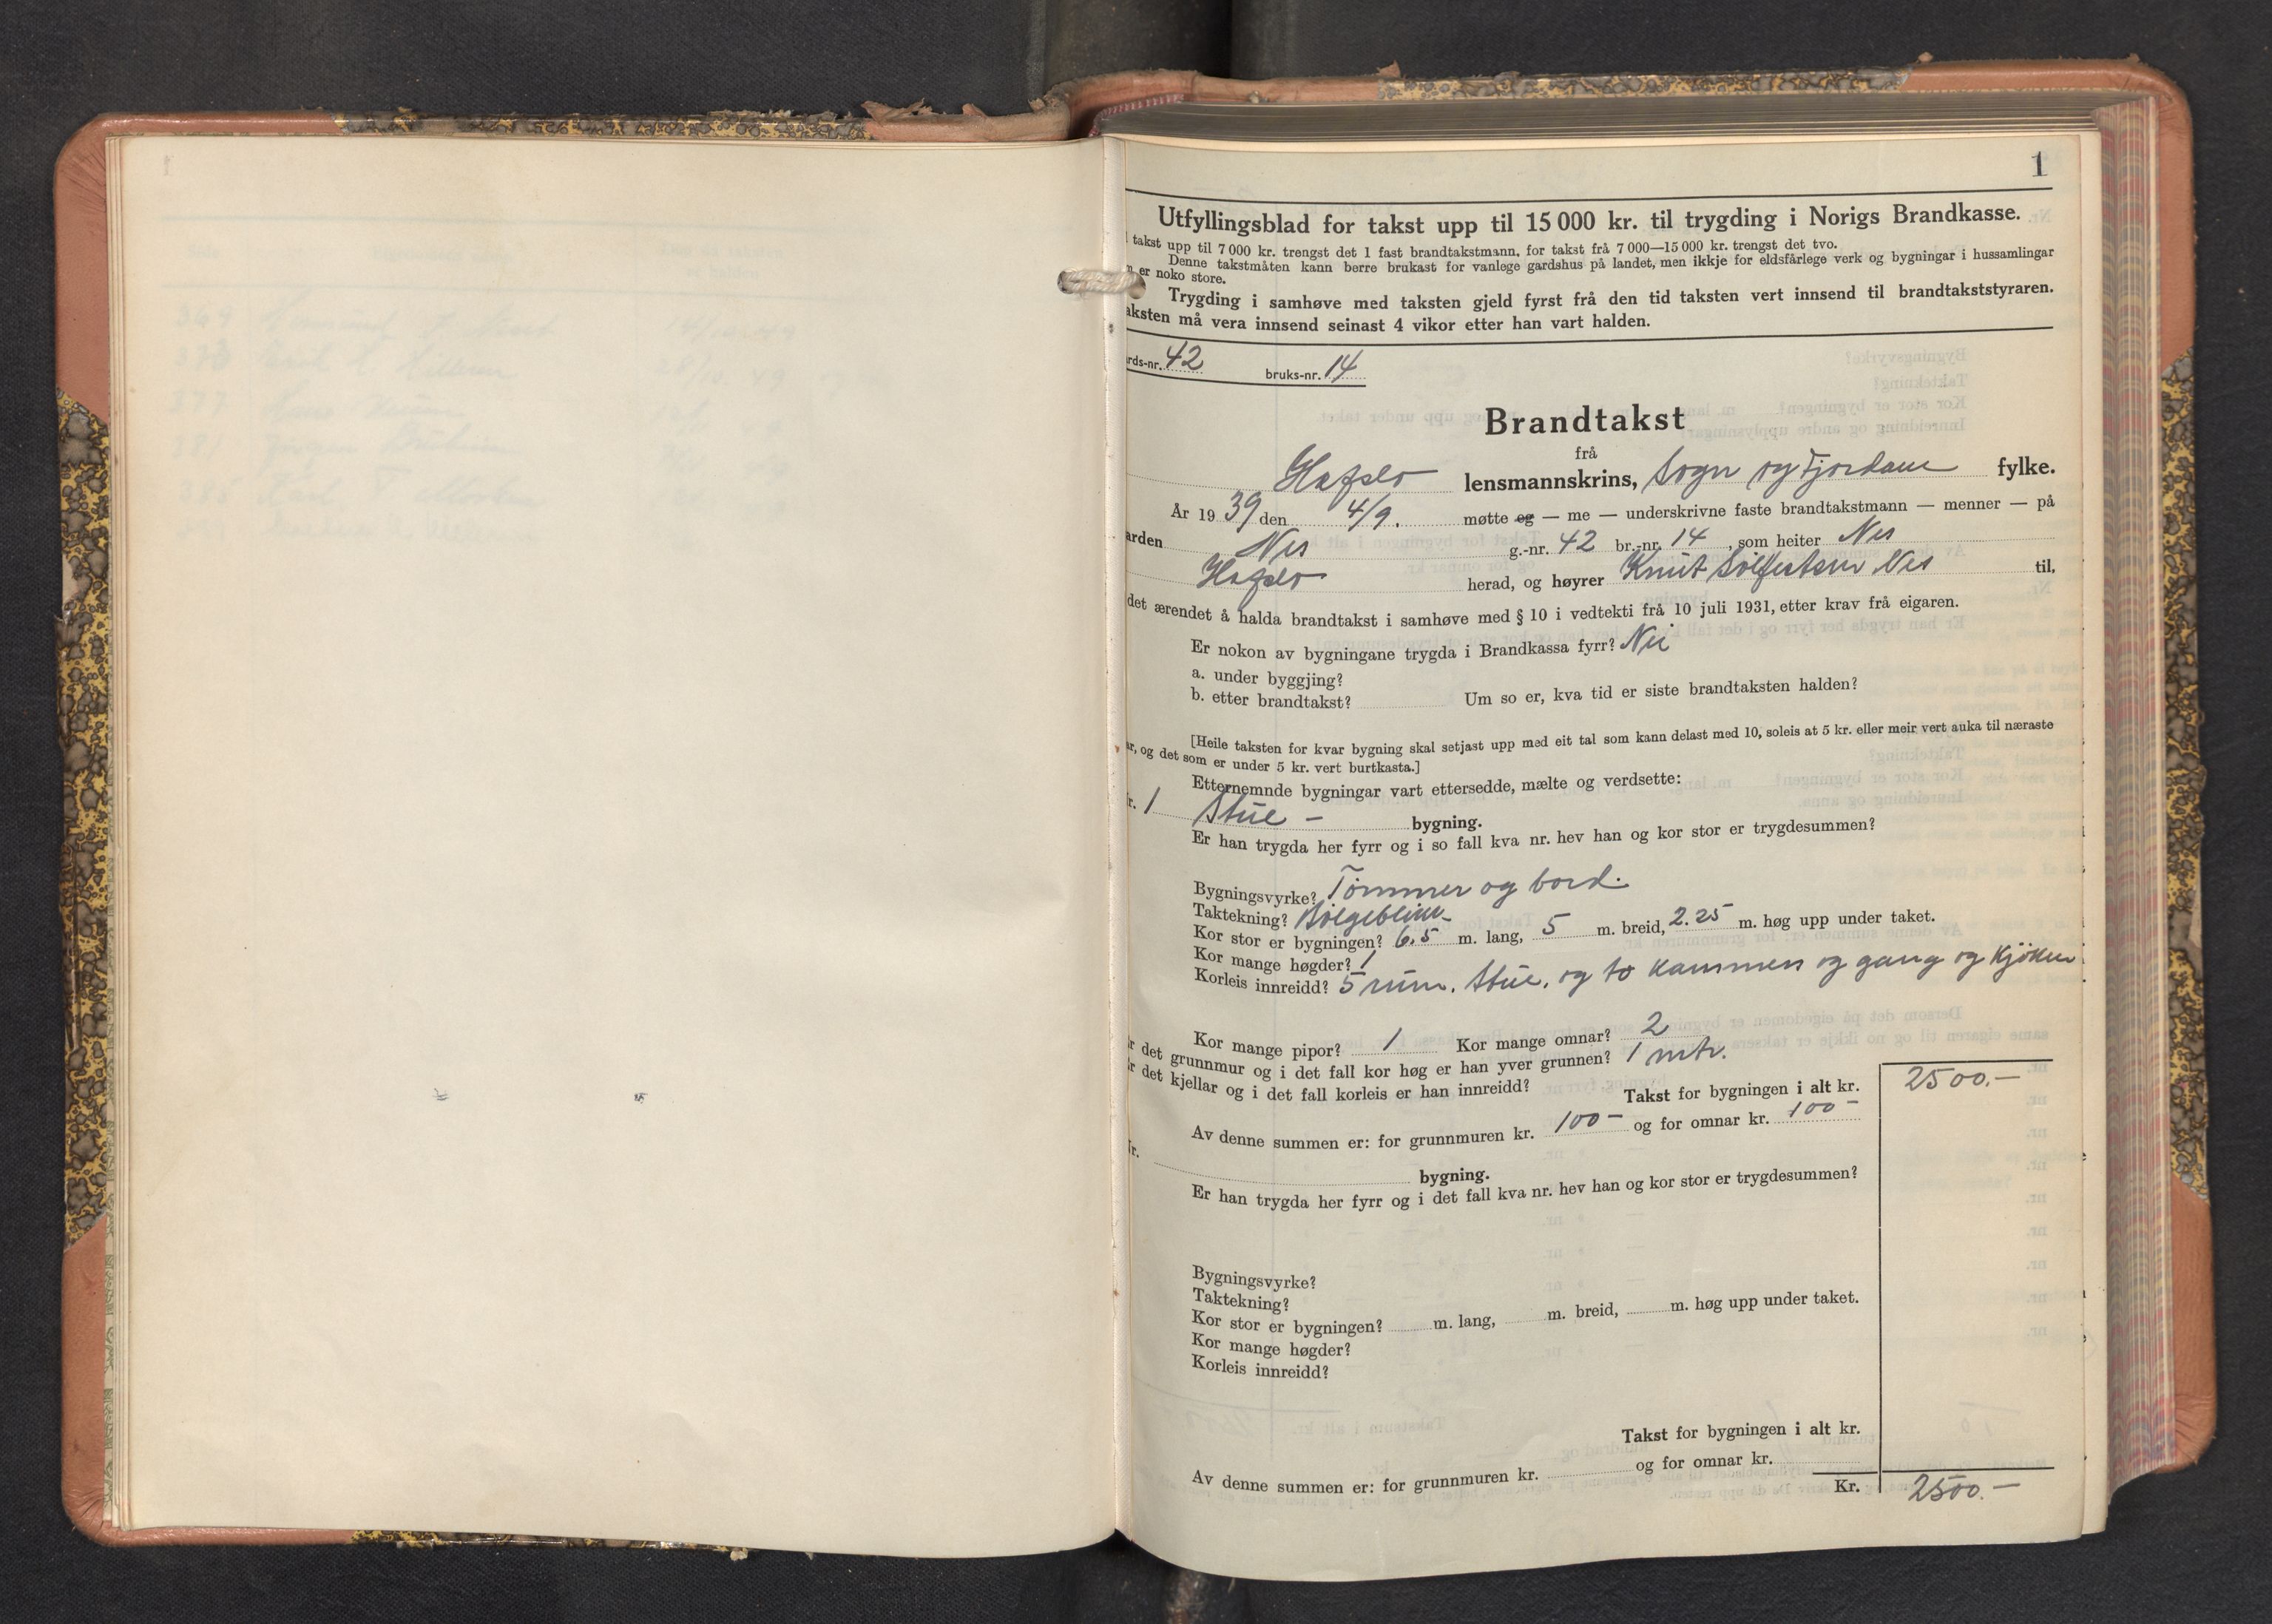 1
Utfyllingsblad for takst upp til 15 000 kr. til trygding i Norigs Brandkasse.
takst upp til 7 000 kr. trengst det 1 fast brandtakstmann, for takst frå 7 000—15 000 kr. trengst det tvo.
Denne takstmåten kann berre brukast for vanlege gardshus på landet, men ikkje for eldsfårlege verk og bygningar i hussamlingar
er noko store.
Trygding i samhøve med taksten gjeld fyrst frå den tid taksten vert innsend til brandtakststyraren.
aksten må vera innsend seinast 4 vikor etter han vart halden.
rds-nr. 42 bruks-nr. 14
Brandtakst
frå
Hafslo lensmannskrins, Sogn og Fjordane fylke.
År 19 39 den 4/9. møtte eg — me — underskrivne faste brandtakstmann — menner — på
arden Nes g.-nr. 42 br.-nr. 14, som heiter Nes
Hafslo herad, og høyrer Knut Sølfestsen Nes til,
det ærendet å halda brandtakst i samhøve med § 10 i vedtekti frå 10 juli 1931, etter krav frå eigaren.
Er nokon av bygningane trygda i Brandkassa fyrr? Nei
a. under byggjing?
b. etter brandtakst? Um so er, kva tid er siste brandtaksten halden?
[Heile taksten for kvar bygning skal setjast upp med eit tal som kann delast med 10, soleis at 5 kr. eller meir vert auka til næraste
ar, og det som er under 5 kr. vert burtkasta.]
Etternemnde bygningar vart ettersedde, mælte og verdsette:
r. 1 Stue — bygning.
Er han trygda her fyrr og i so fall kva nr. hev han og kor stor er trygdesummen?
Bygningsvyrke? Tømmer og bord.
Taktekning? Bølgeblikk
Kor stor er bygningen? 6.5 m. lang, 5 m. breid, 2.25 m. høg upp under taket.
Kor mange høgder? 1
Korleis innreidd? 5 rum. Stue, og to kammers og gang og kjøken
Kor mange pipor? 1 Kor mange omnar? 2
r det grunnmur og i det fall kor høg er han yver grunnen? 1 mtr.
r det kjellar og i det fall korleis er han innreidd?
Takst for bygningen i alt kr. 2500.—
Av denne summen er: for grunnmuren kr. 100 — og for omnar kr. 100 —
r. bygning.
Er han trygda her fyrr og i det fall kva nr. hev han og kor stor er trygdesummen?
Bygningsvyrke?
Taktekning?
Kor stor er bygningen? m. lang, m. breid, m. høg upp under taket.
Kor mange høgder?
Korleis innreidd?
Takst for bygningen i alt kr.
Av denne summen er: for grunnmuren kr. og for omnar kr.
Kr. 2500.—